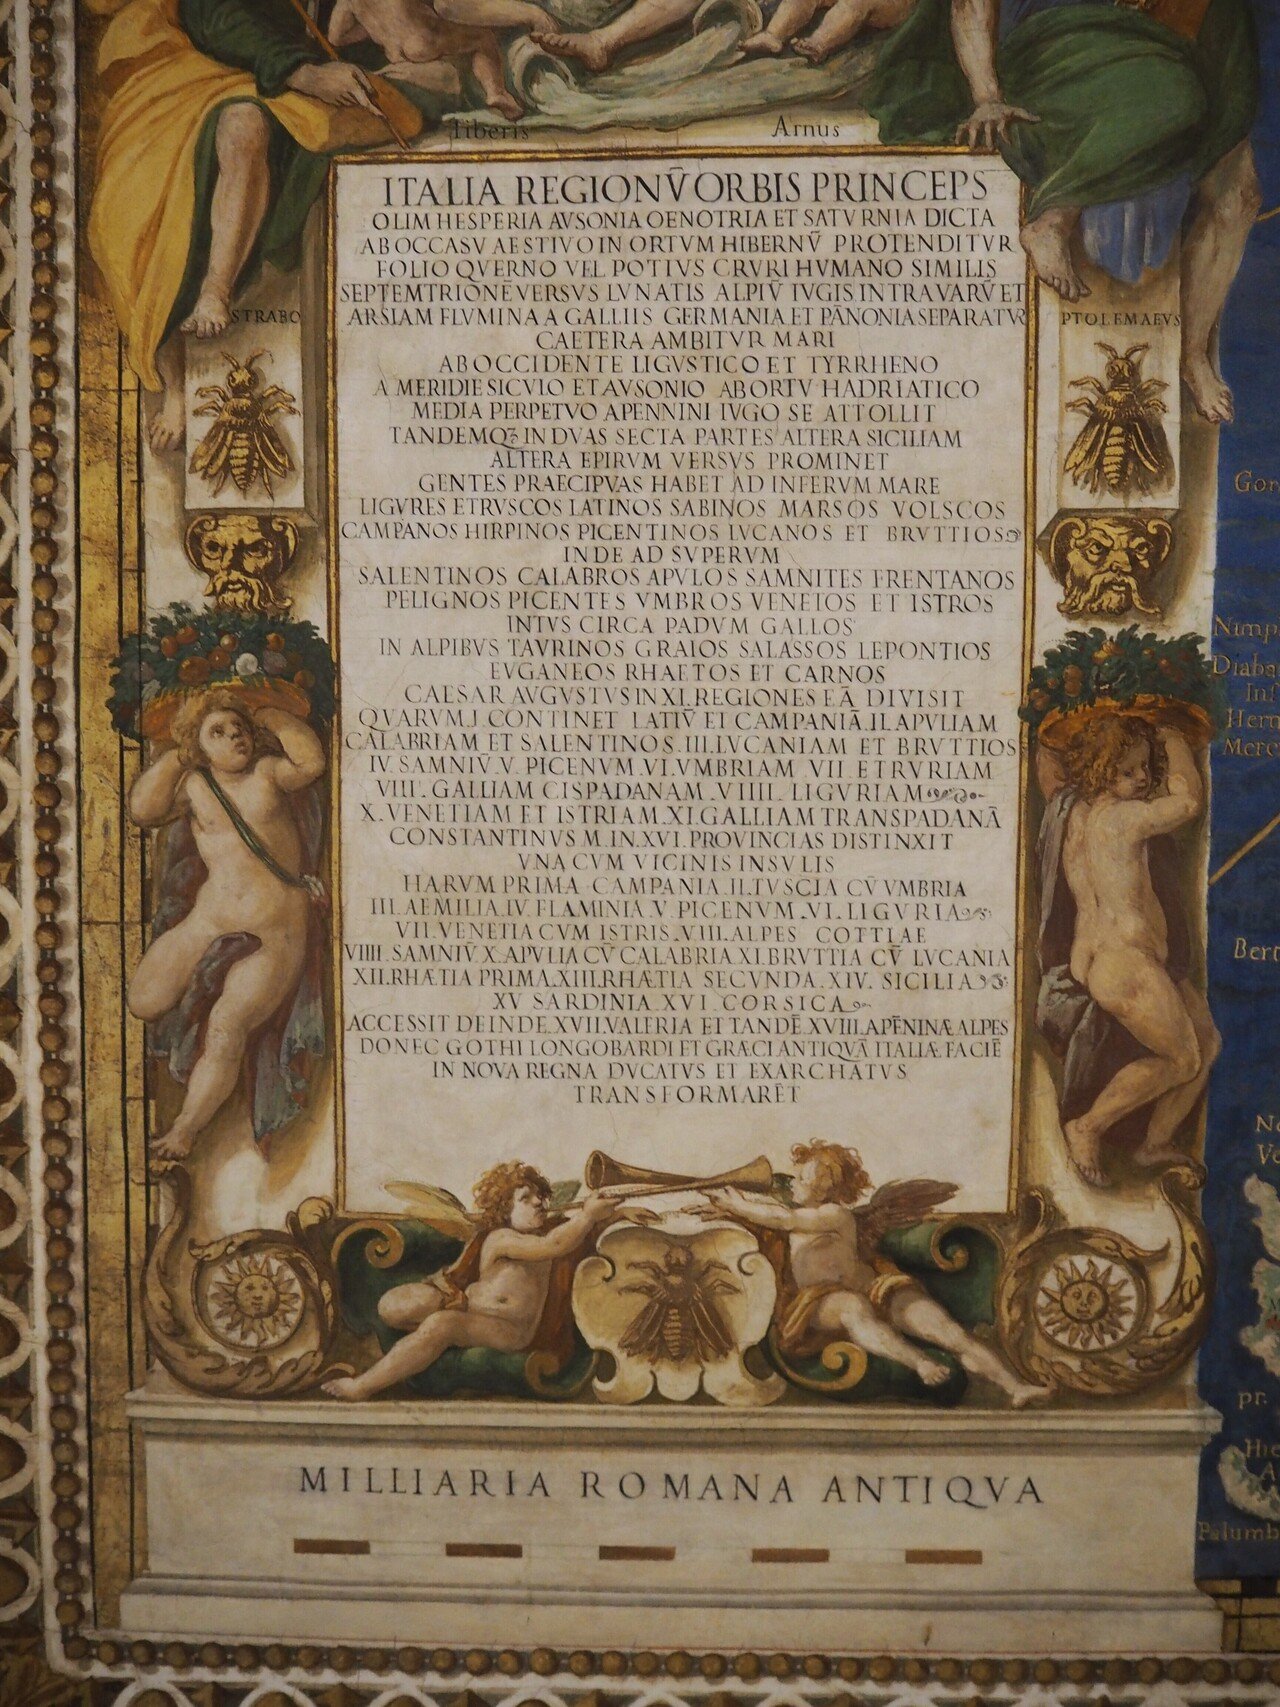 Tiberis
Arnus
ITALIA REGIONV̄ ORBIS PRINCEPS
OLIM HESPERIA AVSONIA OENOTRIA ET SATVRNIA DICTA
AB OCCASV AESTIVO IN ORTVM HIBERNV̄ PROTENDITVR
FOLIO QVERNO VEL POTIVS CRVRI HVMANO SIMILIS
SEPTEMTRIONĒ VERSVS LVNATIS ALPIV̄ IVGIS INTRA VARV̄ ET
ARSIAM FLVMINA A GALLIIS GERMANIA ET PĀNONIA SEPARATVR
CAETERA AMBITVR MARI
AB OCCIDENTE LIGVSTICO ET TYRRHENO
A MERIDIE SICVIO ET AVSONIO AB ORTV HADRIATICO
MEDIA PERPETVO APENNINI IVGO SE ATTOLLIT
TANDEMQꝫ IN DVAS SECTA PARTES ALTERA SICILIAM
ALTERA EPIRVM VERSVS PROMINET
GENTES PRAECIPVAS HABET AD INFERVM MARE
LIGVRES ETRVSCOS LATINOS SABINOS MARSOS VOLSCOS
CAMPANOS HIRPINOS PICENTINOS LVCANOS ET BRVTTIOS
INDE AD SVPERVM
SALENTINOS CALABROS APVLOS SAMNITES FRENTANOS
PELIGNOS PICENTES VMBROS VENETOS ET ISTROS
INTVS CIRCA PADVM GALLOS
IN ALPIBVS TAVRINOS GRAIOS SALASSOS LEPONTIOS
EVGANEOS RHAETOS ET CARNOS
CAESAR AVGVSTVS IN XI. REGIONES EĀ DIVISIT
QVARVM.I.CONTINET LATIV̄ ET CAMPANIĀ.II.APVLIAM
CALABRIAM ET SALENTINOS.III.LVCANIAM ET BRVTTIOS
IV. SAMNIV̄.V. PICENVM.VI.VMBRIAM VII ETRVRIAM
VIII. GALLIAM CISPADANAM.VIIII. LIGVRIAM
X. VENETIAM ET ISTRIAM.XI.GALLIAM TRANSPADANĀ
CONSTANTINVS M. IN.XVI.PROVINCIAS DISTINXIT
VNA CVM VICINIS INSVLIS
HARVM PRIMA CAMPANIA.II.TVSCIA CV̄ VMBRIA
III.AEMILIA.IV. FLAMINIA.V. PICENVM.VI.LIGVRIA
VII.VENETIA CVM ISTRIS.VIII.ALPES COTTIAE
VIIII.SAMNIV̄.X.APVLIA CV̄ CALABRIA XI.BRVTTIA CV̄ LVCANIA
XII.RHÆTIA PRIMA.XIII.RHÆTIA SECVNDA.XIV. SICILIA
XV SARDINIA.XVI CORSICA
ACCESSIT DEINDE.XVII.VALERIA ET TANDĒ.XVIII.APĒNINÆ ALPES
DONEC GOTHI LONGOBARDI ET GRÆCI ANTIQVĀ ITALIÆ FACIĒ
IN NOVA REGNA DVCATVS ET EXARCHATVS
TRANSFORMARĒT
STRABO
PTOLEMAEVS
MILLIARIA ROMANA ANTIQVA